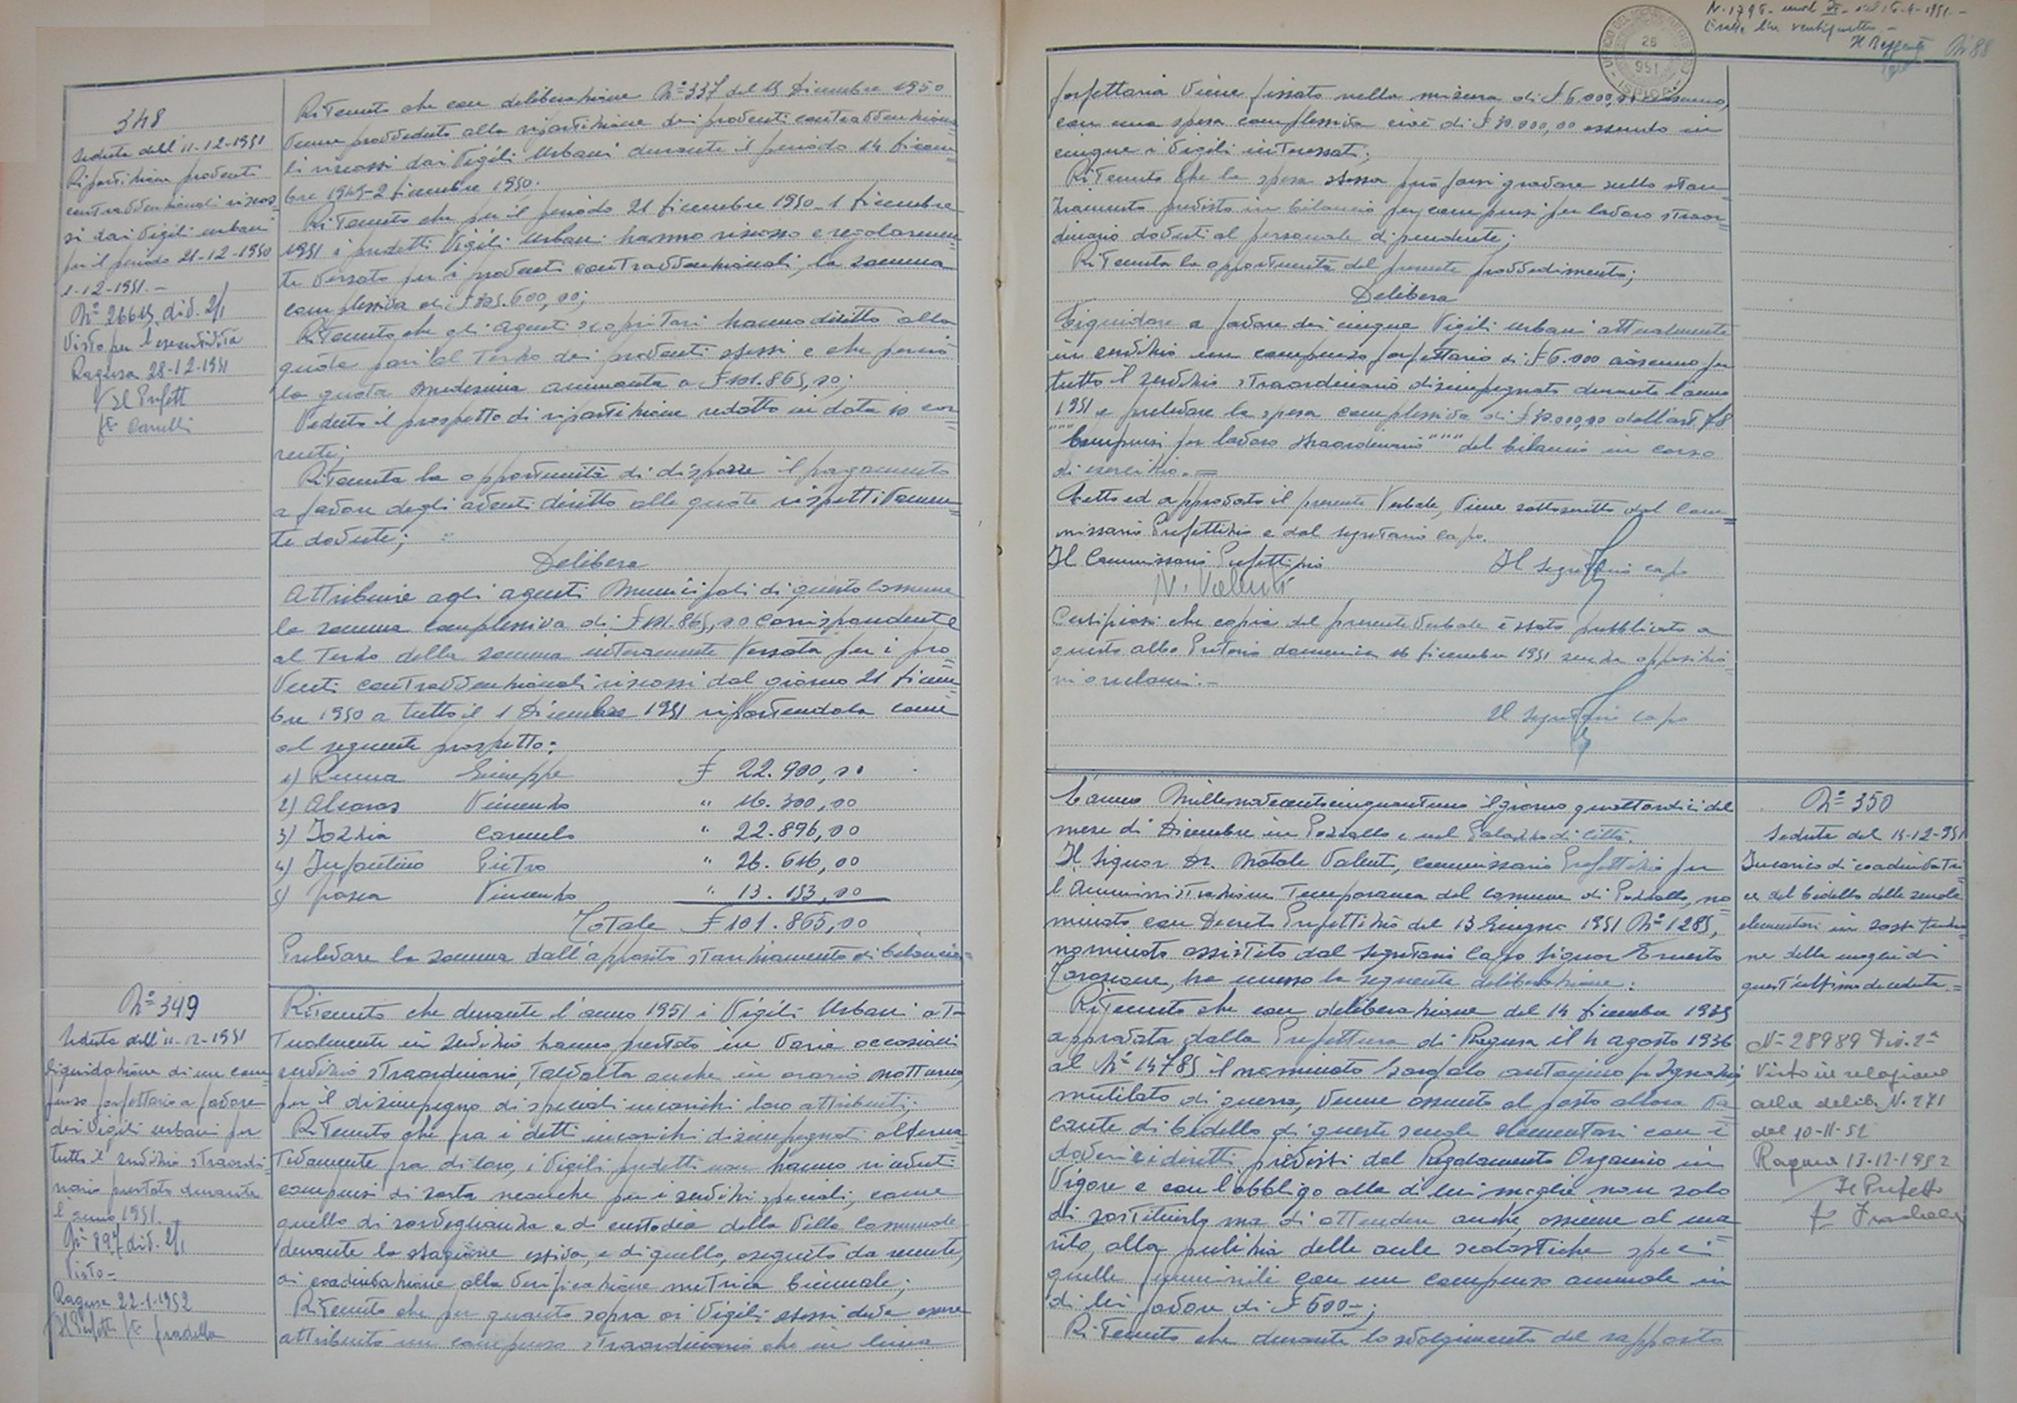 348
Seduta dell'11-12-1951
Ripartizione proventi
contravvenzionali riscos=
si dai Vigili urbani
per il periodo 21-12-1950
1-12-1951.-
N° 26615 div. 2/1
Visto per l'esecutività
Ragusa 28-12-1951
Il Prefetto
Ritenuto che con deliberazione N° 337 del 15 Dicembre 1950
venne provveduto alla ripartizione dei proventi contravvenziona=
li riscossi dai Vigili Urbani durante il periodo 14 dicem=
bre 1949-2 dicembre 1950.
Ritenuto che per il periodo 21 dicembre 1950-1 dicembre
1951 i predetti Vigili Urbani hanno riscosso e regolarmen=
te versato per i proventi contravvenzionali, la somma
complessiva di £ 305.600,00;
Ritenuto che gli agenti scopritori hanno diritto alla
quota pari al terzo dei proventi stessi e che perciò
la quota medesima ammonta a £ 101.865,00;
Veduto il prospetto di ripartizione redatto in data 10 cor
rente;
Ritenuta la opportunità di disporre il pagamento
a favore degli aventi diritto alle quote rispettivamen=
te dovute;
Delibera
Attribuire agli agenti Municipali di questo Comune
la somma complessiva di £ 101.865,00 corrispondente
al terzo della somma interamente versata per i pro=
venti contravvenzionali riscossi dal giorno 21 dicem=
bre 1950 a tutto il 1 Dicembre 1951 ripartendola come
al seguente prospetto:
1) Giuseppe £ 22.900,00
2) Vincenzo " 16.300,00
3) Iozzia Carmelo " 22.896,00
4) Infantino Pietro " 26.616,00
5) Vincenzo " 13.153,00
Totale £ 101.865,00
Prelevare la somma dall'apposito stanziamento di bilancio=
N° 349
Seduta dell'11-12-1951
Liquidazione di un com=
penso forfettario a favore
dei Vigili urbani per
tutto il servizio straordi=
nario prestato durante
l'anno 1951.
N° 897 div. 2/1
Visto=
Ragusa 22-1-1952
Il Prefetto fto Fradella
Ritenuto che durante l'anno 1951 i Vigili Urbani at=
tualmente in servizio hanno prestato in varie occasioni
servizio straordinario, talvolta anche in orario notturno,
per il disimpegno di speciali incarichi loro attribuiti;
Ritenuto che fra i detti incarichi disimpegnati alterna=
tivamente fra di loro, i Vigili predetti non hanno ricevuti
compensi di sorta neanche per i servizi speciali, come
quello di sorveglianza e di custodia della Villa Comunale
durante la stagione estiva, e di quello, eseguito da recente,
di coadiuvazione alla verificazione metrica biennale;
Ritenuto che per quanto sopra ai Vigili stessi deve essere
attribuito un compenso straordinario che in linea
N. 1795
Il Reggente
N° 88
26
951
ISPICA
forfettaria viene fissato nella misura di £ 6.000,00 ciascuno,
con una spesa complessiva cioè di £ 30.000,00 essendo in
cinque i Vigili interessati;
Ritenuto che la spesa stessa può farsi gravare sullo stan=
ziamento previsto in bilancio per compensi per lavoro straor=
dinario dovuti al personale dipendente;
Ritenuta la opportunità del presente provvedimento;
Delibera
Liquidare a favore dei cinque Vigili urbani attualmente
in servizio un compenso forfettario di £ 6.000 ciascuno per
tutto il servizio straordinario disimpegnato durante l'anno
1951 e prelevare la spesa complessiva di £ 30.000,00 dall'art. 78
""" Compensi per lavoro straordinario """ del bilancio in corso
di esercizio.=
Letto ed approvato il presente Verbale, viene sottoscritto dal Com=
missario Prefettizio e dal segretario capo.
Il Commissario Prefettizio Il Segretario capo
N. Valenti
Certificasi che copia del presente verbale è stato pubblicato a
questo albo Pretorio domenica 16 dicembre 1951 senza opposizio
ni o reclami.-
Il Segretario Capo
L'anno Millenovecentocinquantuno il giorno quattordici del
mese di Dicembre in Pozzallo e nel Palazzo di Città.
Il Signor Dr. Natale Valenti, Commissario Prefettizio per
l'Amministrazione Temporanea del Comune di Pozzallo, no
minato con Decreto Prefettizio del 13 Giugno 1951 N° 1285,
nominato assistito dal Segretario Capo Signor Ernesto
ha emesso la seguente deliberazione:
Ritenuto che con deliberazione del 14 dicembre 1935
approvata dalla Prefettura di Ragusa il 4 agosto 1936
al N° 14785 il nominato antonino fu Ignazio,
mutilato di guerra, venne assunto al posto allora va=
cante di bidello di queste scuole elementari con i
doveri e i diritti previsti dal Regolamento Organico in
vigore e con l'obbligo alla di lui moglie non solo
di sostituirlo ma di attendere anche, assieme al ma
rito, alla pulizia delle aule scolastiche specie
quelle femminili con un compenso annuale in
di lei favore di £ 600=;
Ritenuto che durante lo svolgimento del rapporto
N° 350
Seduta del 14-12-951
Incarico di coadiuvatri=
ce del bidello delle scuole
elementari in sostituzio=
ne della moglie di
quest'ultimo deceduta.=
N° 28989 Div. 2ª
Visto in relazione
alla delib. N. 271
del 10-11-52
Ragusa 13-12-1952
Il Prefetto